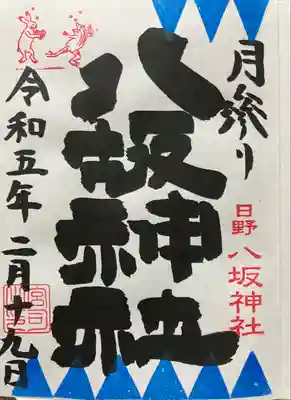 月参り
日野
八坂神社
八坂神社
令和五年 二月十九日